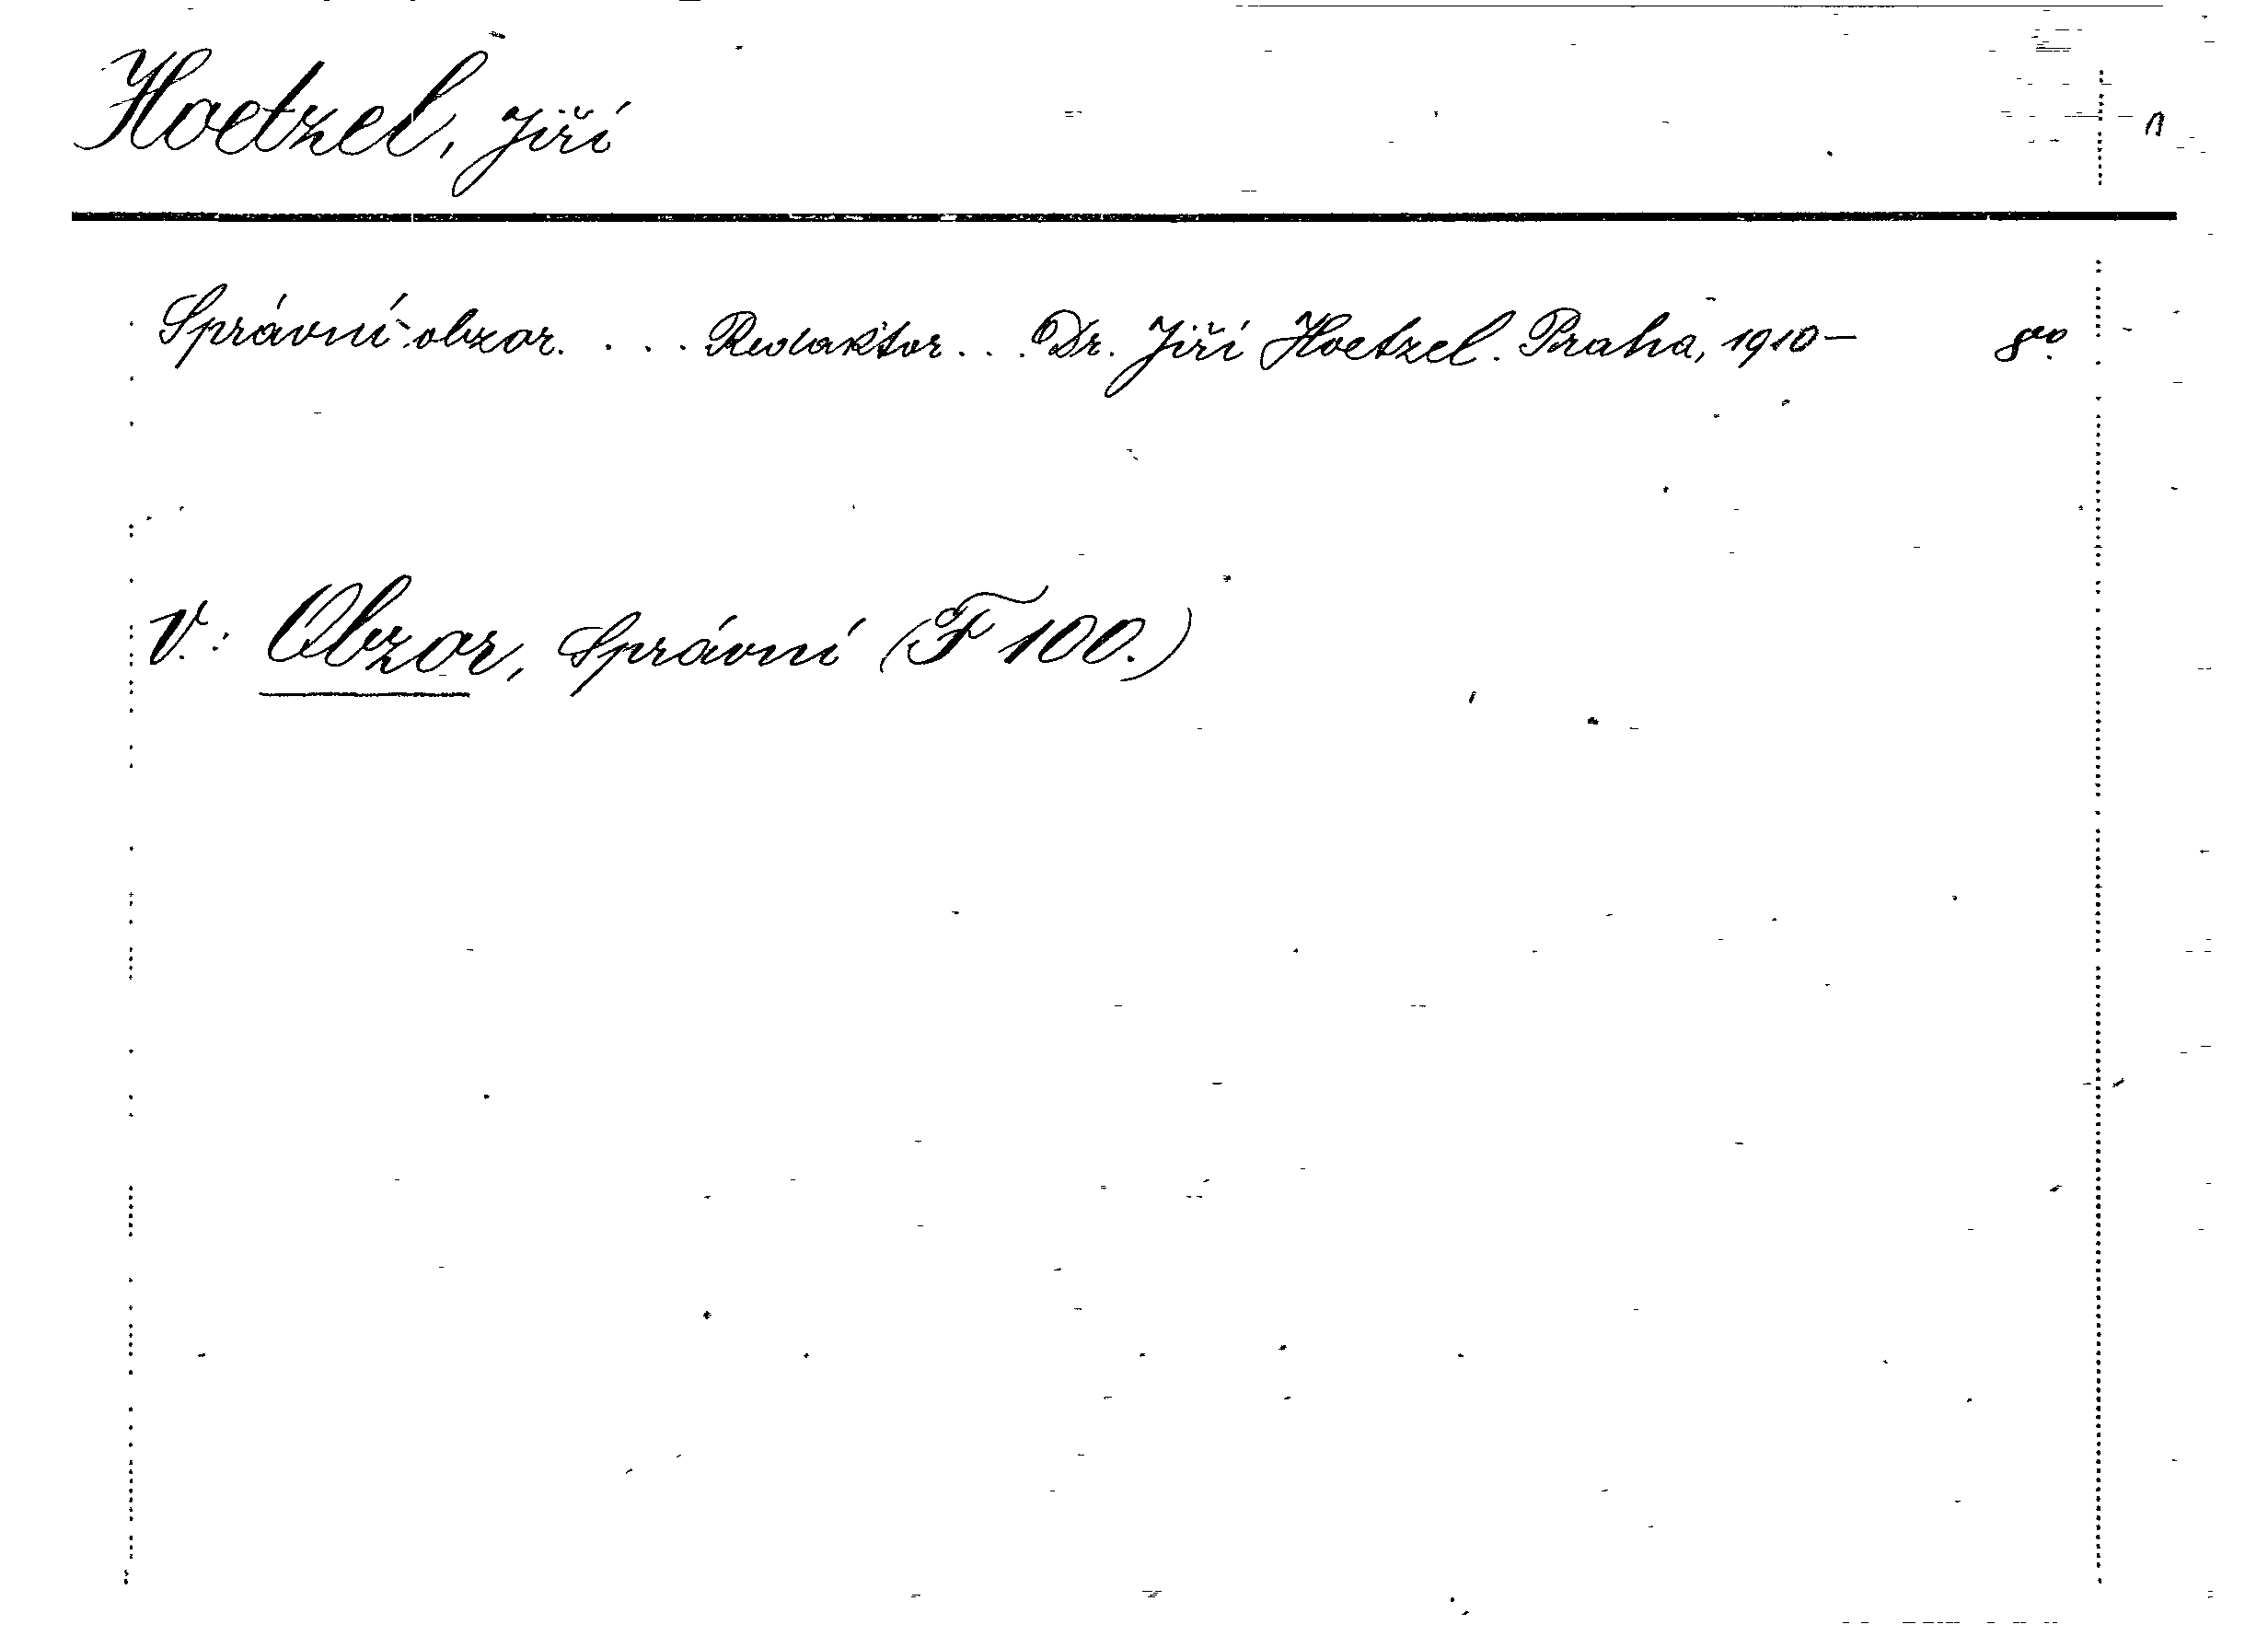 Hoetzel, Jiří
Správní obzor. . . . Redaktor. . . Dr. Jiří Hoetzel. Praha, 1910— 8vo.
V.: Obzor, Správní (F 100.)